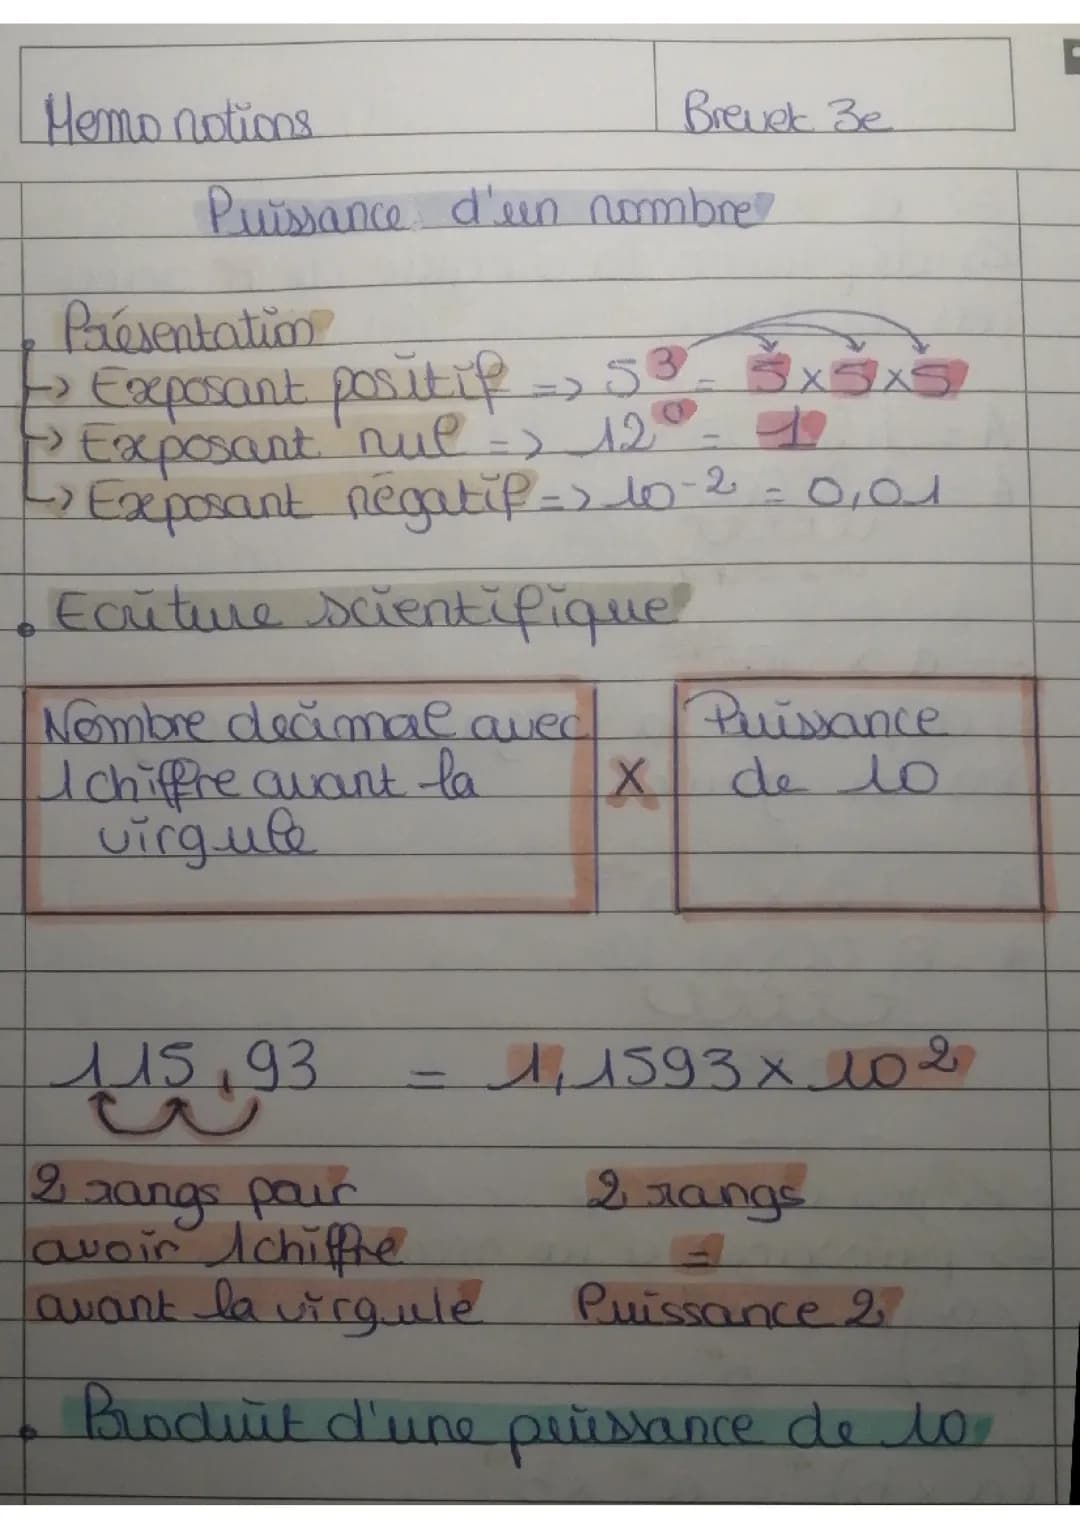 Memo notions
Brevet 3e
Puissance d'un nombre
Présentation
↳ Exposant positif => 5³ = 5×5×5
↳ Exposant nul => 12⁰ = 1
↳ Exposant négatif => 10⁻² = 0,01
• Ecriture scientifique
Nombre decimal avec
1 chiffre avant la
virgule
X
Puissance
de 10
115,93 = 1,1593 × 10²
2 rangs pour
avoir 1 chiffre
avant la virgule
2 rangs
=
Puissance 2
• Produit d'une puissance de 10